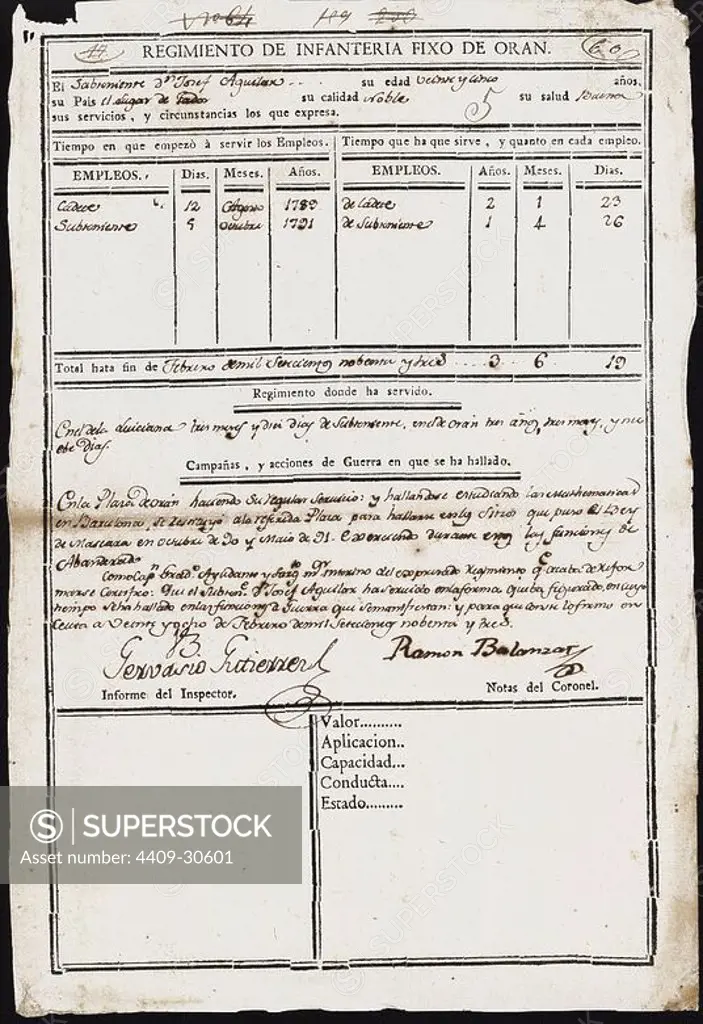 Nº 64 199 200
44
REGIMIENTO DE INFANTERIA FIXO DE ORAN.
60
El Subteniente Dn. Josef Aguilar .. su edad veinte y cinco años,
su Pais el Lugar de su calidad Noble 5 su salud Buena
sus servicios, y circunstancias los que expresa.
Tiempo en que empezò à servir los Empleos. Tiempo que ha que sirve, y quanto en cada empleo.
EMPLEOS. Dias. Meses. Años. EMPLEOS. Años. Meses. Dias.
Cadete 12 Agosto 1789 de Cadete 2 1 23
Subteniente 5 Octubre 1791 de Subteniente 1 4 26
Total hata fin de Febrero de mil Setecientos nobenta y tres 3 6 19
Regimiento donde ha servido.
En el de la Luiciana tres meses y diez dias de Subteniente, en el de Orán tres años, tres meses, y nue
be dias.
Campañas, y acciones de Guerra en que se ha hallado.
En la Plaza de Orán haciendo su regular servicio: y hallandose estudiando las Mathematicas
en Barcelona, se restituyó a la referida Plaza para hallarse en los Sitios que puso el Bey
de Mascara en Octubre de 90 y Maio de 91. Exerciendo durante ellos las funciones de
Abanderado
Como Capn. Gradº. Ayudante y Sargto. mr. interino del expresado Regimiento qe. acaba de refor
marse Certifico: Que el Subtene. Dn. Josef Aguilar ha servido en la forma que ba figurado, en cuyo
tiempo se ha hallado en las funciones de Guerra que se manifiestan: y para que conste lo firmo en
Ceuta a veinte y ocho de Febrero de mil Setecientos nobenta y tres.
Vº Bº
Gervasio Gutierrez Ramon Balanzat
Informe del Inspector. Notas del Coronel.
Valor..........
Aplicacion..
Capacidad...
Conducta....
Estado.........
SUPERSTOCK
Asset number: 4409-30601